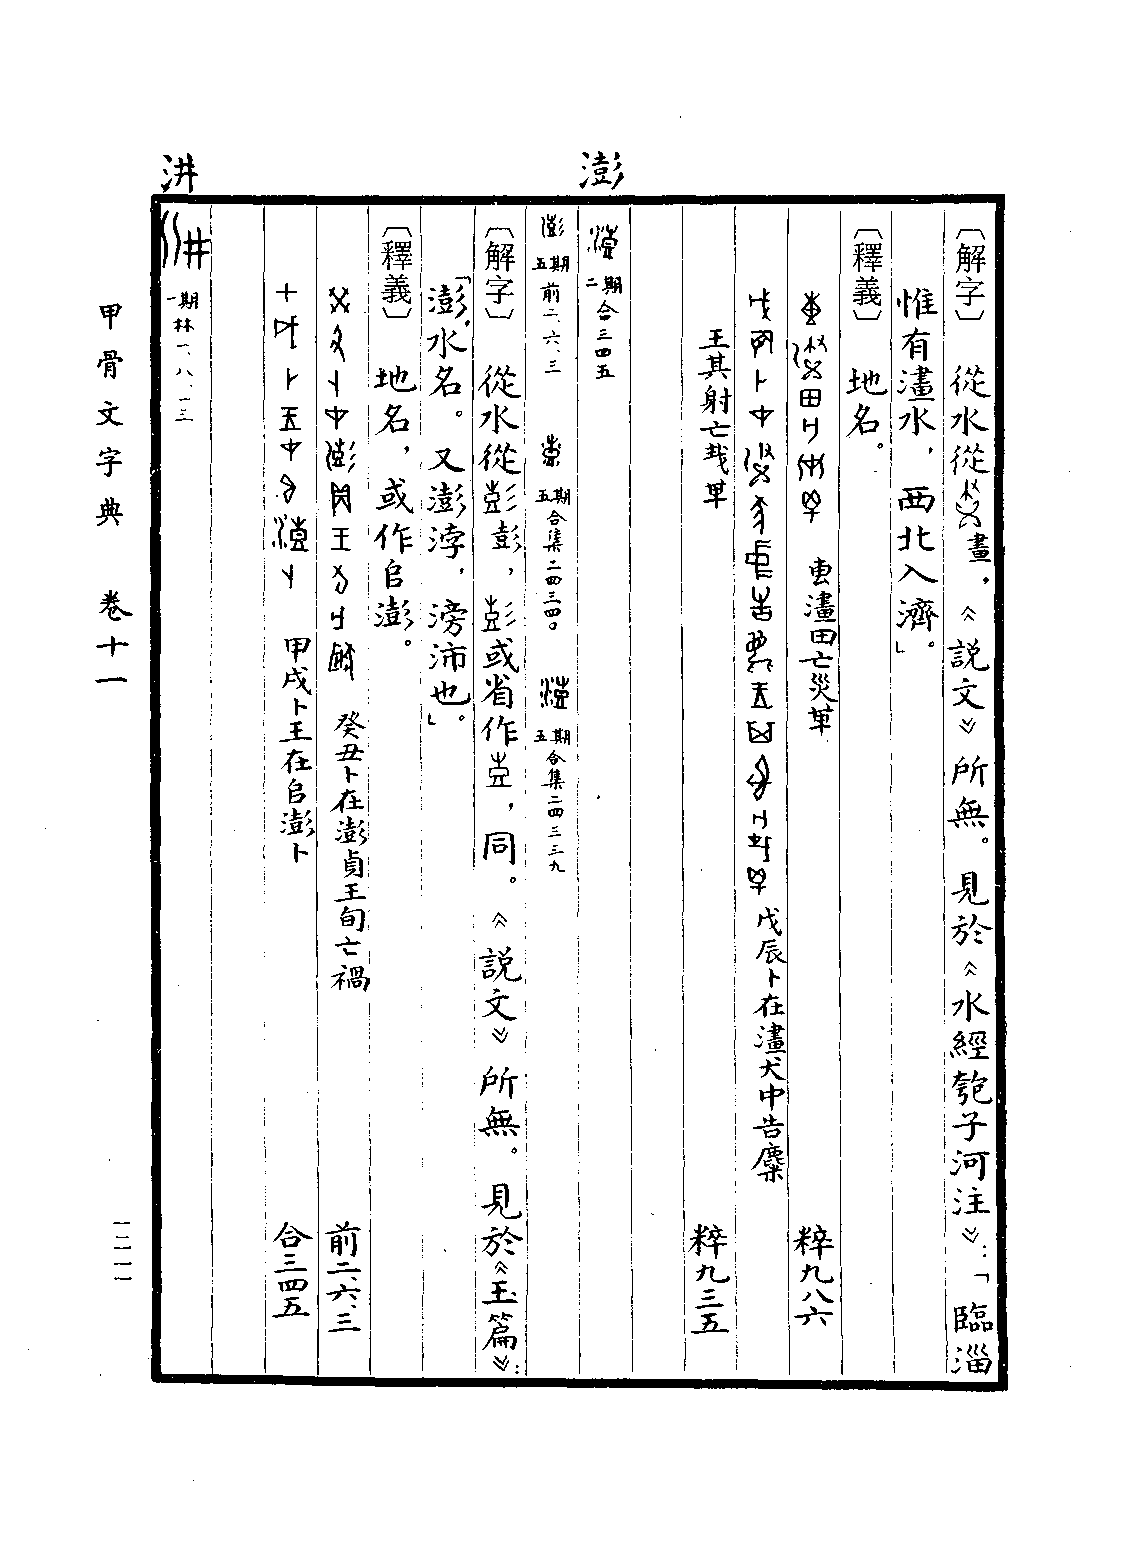 澎
汫
〔解字〕 從水從畫，《說文》所無。見於《水經瓠子河注》：「臨淄
惟有澅水，西北入濟。」
〔釋義〕 地名。
叀澅田亡災 粹九八六
戊辰卜在澅犬中告麋
王其射亡𢦏 粹九三五
二期 合三四五
五期 前二、六、三 五期 合集二四三四〇 五期 合集二四三三九
〔解字〕 從水從彭，彭或省作壴，同。《說文》所無。見於《玉篇》：
「澎，水名。又澎浡，滂沛也。」
〔釋義〕 地名，或作𠂤澎。
癸丑卜在澎貞王旬亡禍 前二、六、三
甲戌卜王在𠂤澎卜 合三四五
一期 林一、八、一三
甲骨文字典 卷十一
一二一一